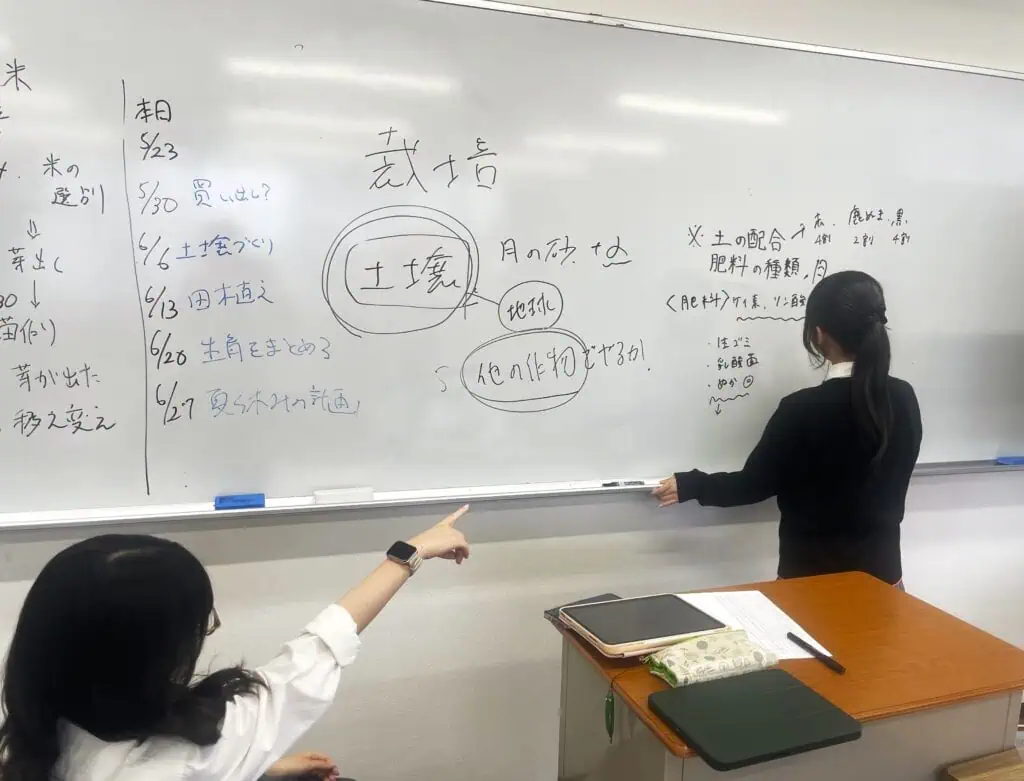 米
米の
選別
⇓
芽出し
↓
苗作り
芽が出た
移え変え
本日
5/23
5/30 買い出し?
6/6 土壌づくり
6/13 田木植え
6/20 生育をまとめる
6/27 夏休みの計画
栽培
土壌
月の砂
地球
他の作物でやるか
※土の配合→赤、鹿ぬま、黒
4割 2割 4割
肥料の種類、月
〈肥料〉ケイ素、リン酸
・生ゴミ
・乳酸菌
・ぬか
↓